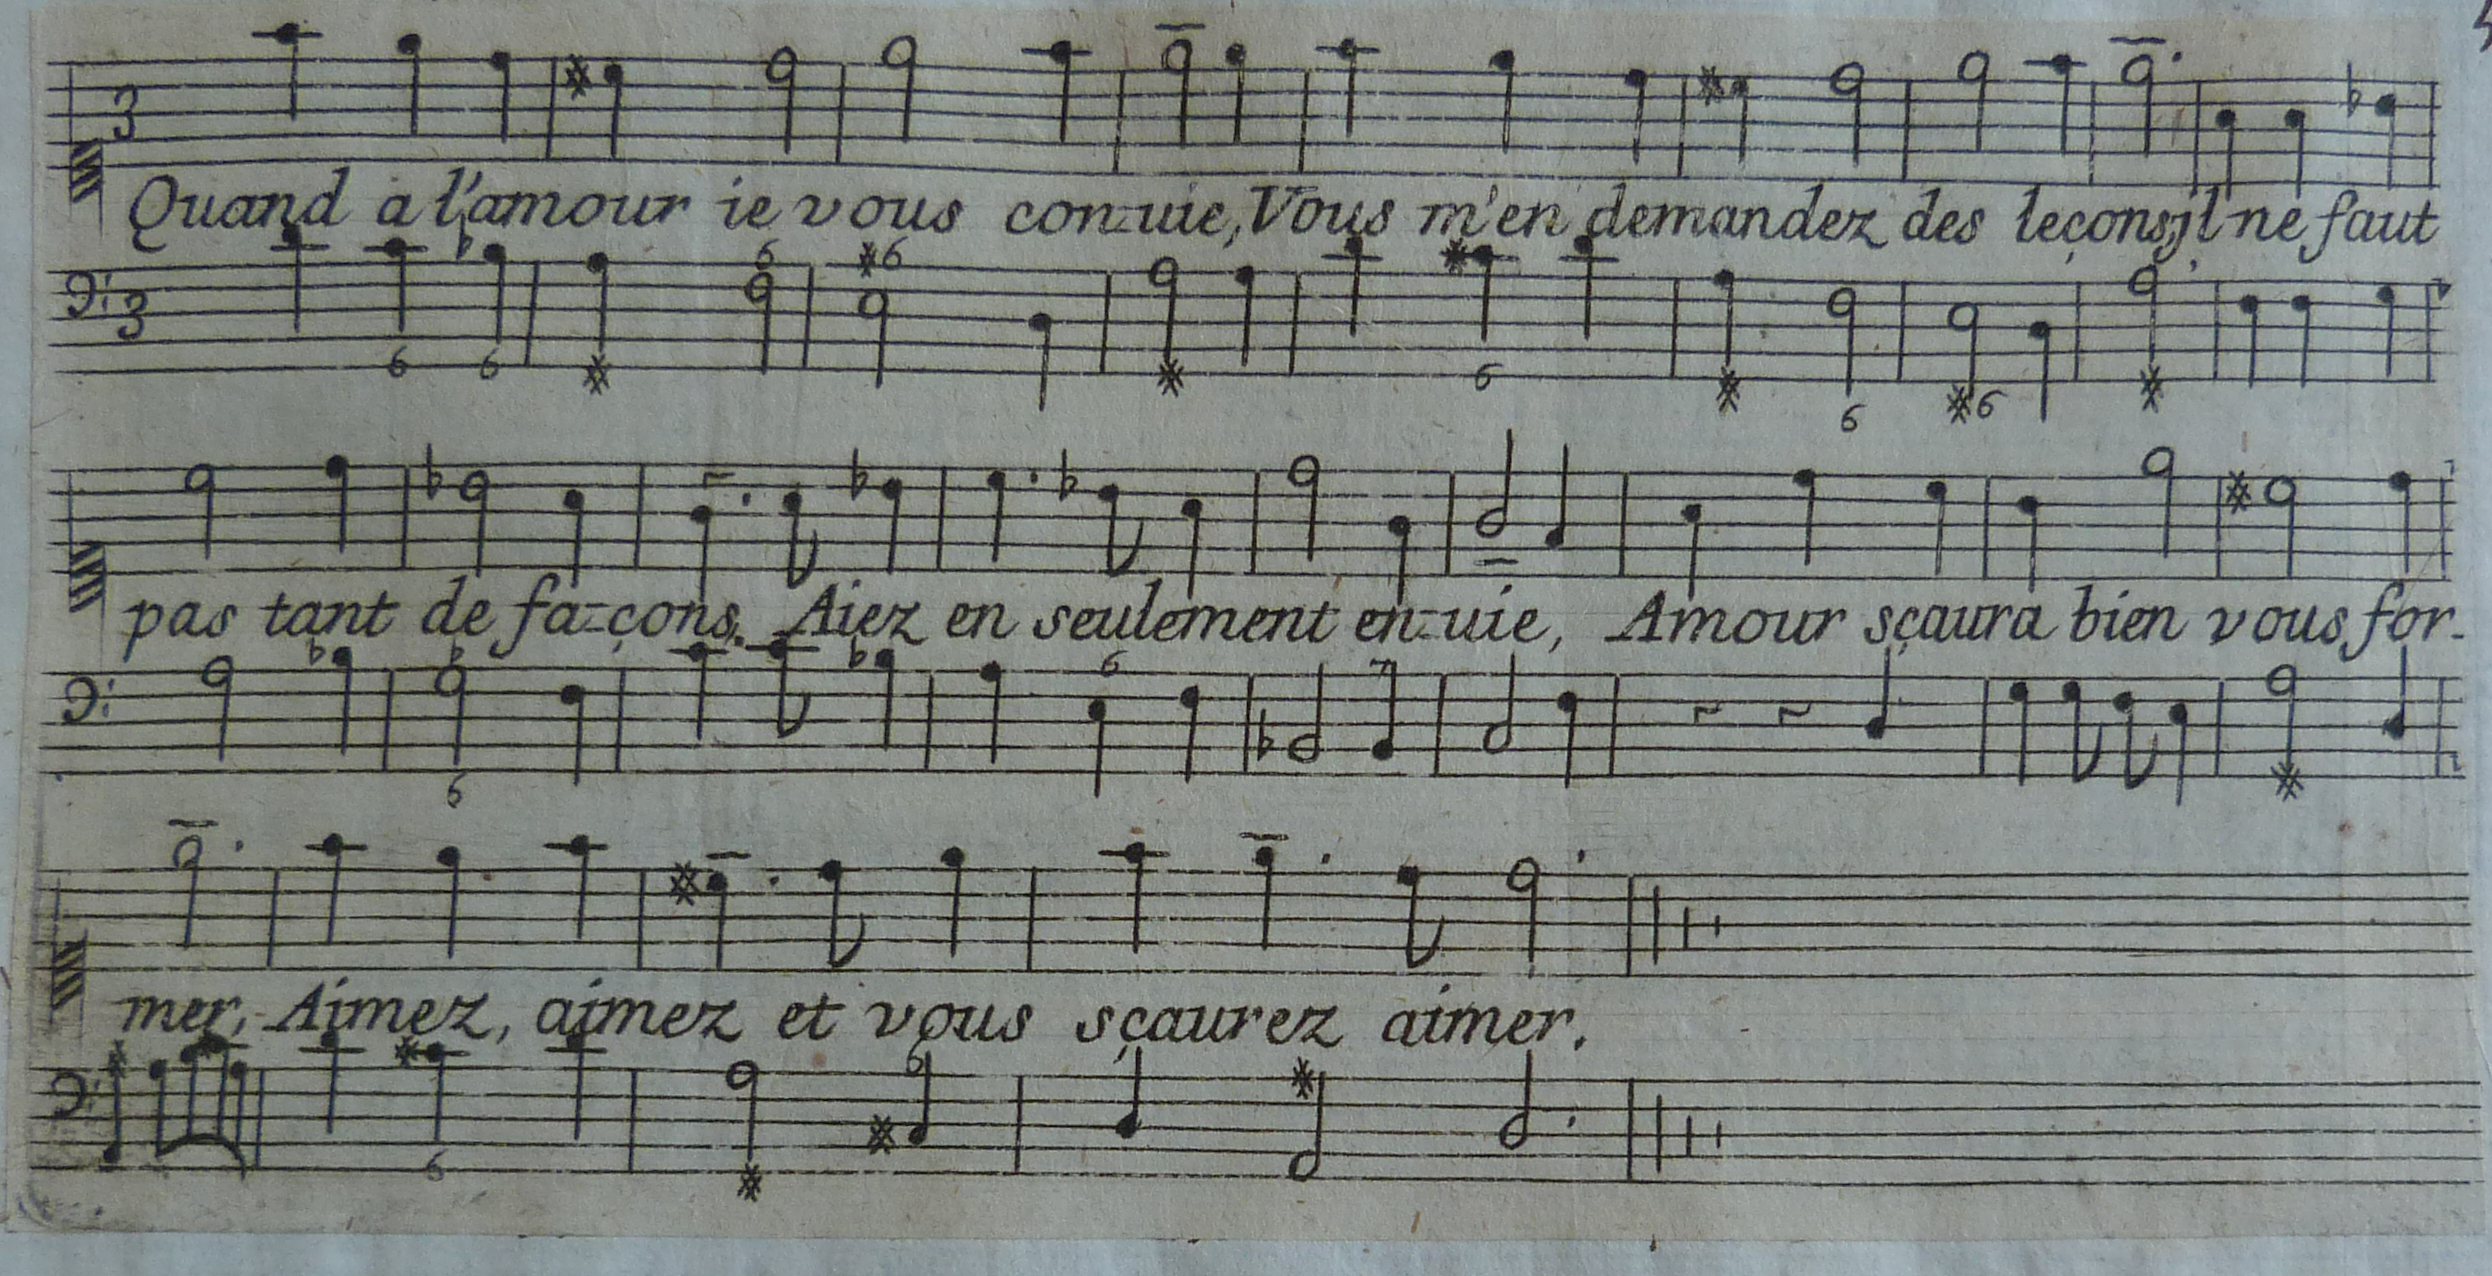 Quand a l'amour ie vous con-uie, Vous m'en demandez des leçons, jl ne faut
pas tant de fa-çons. Aiez en seulement en-uie, Amour sçaura bien vous for-
mer, Aimez, aimez et vous sçaurez aimer.